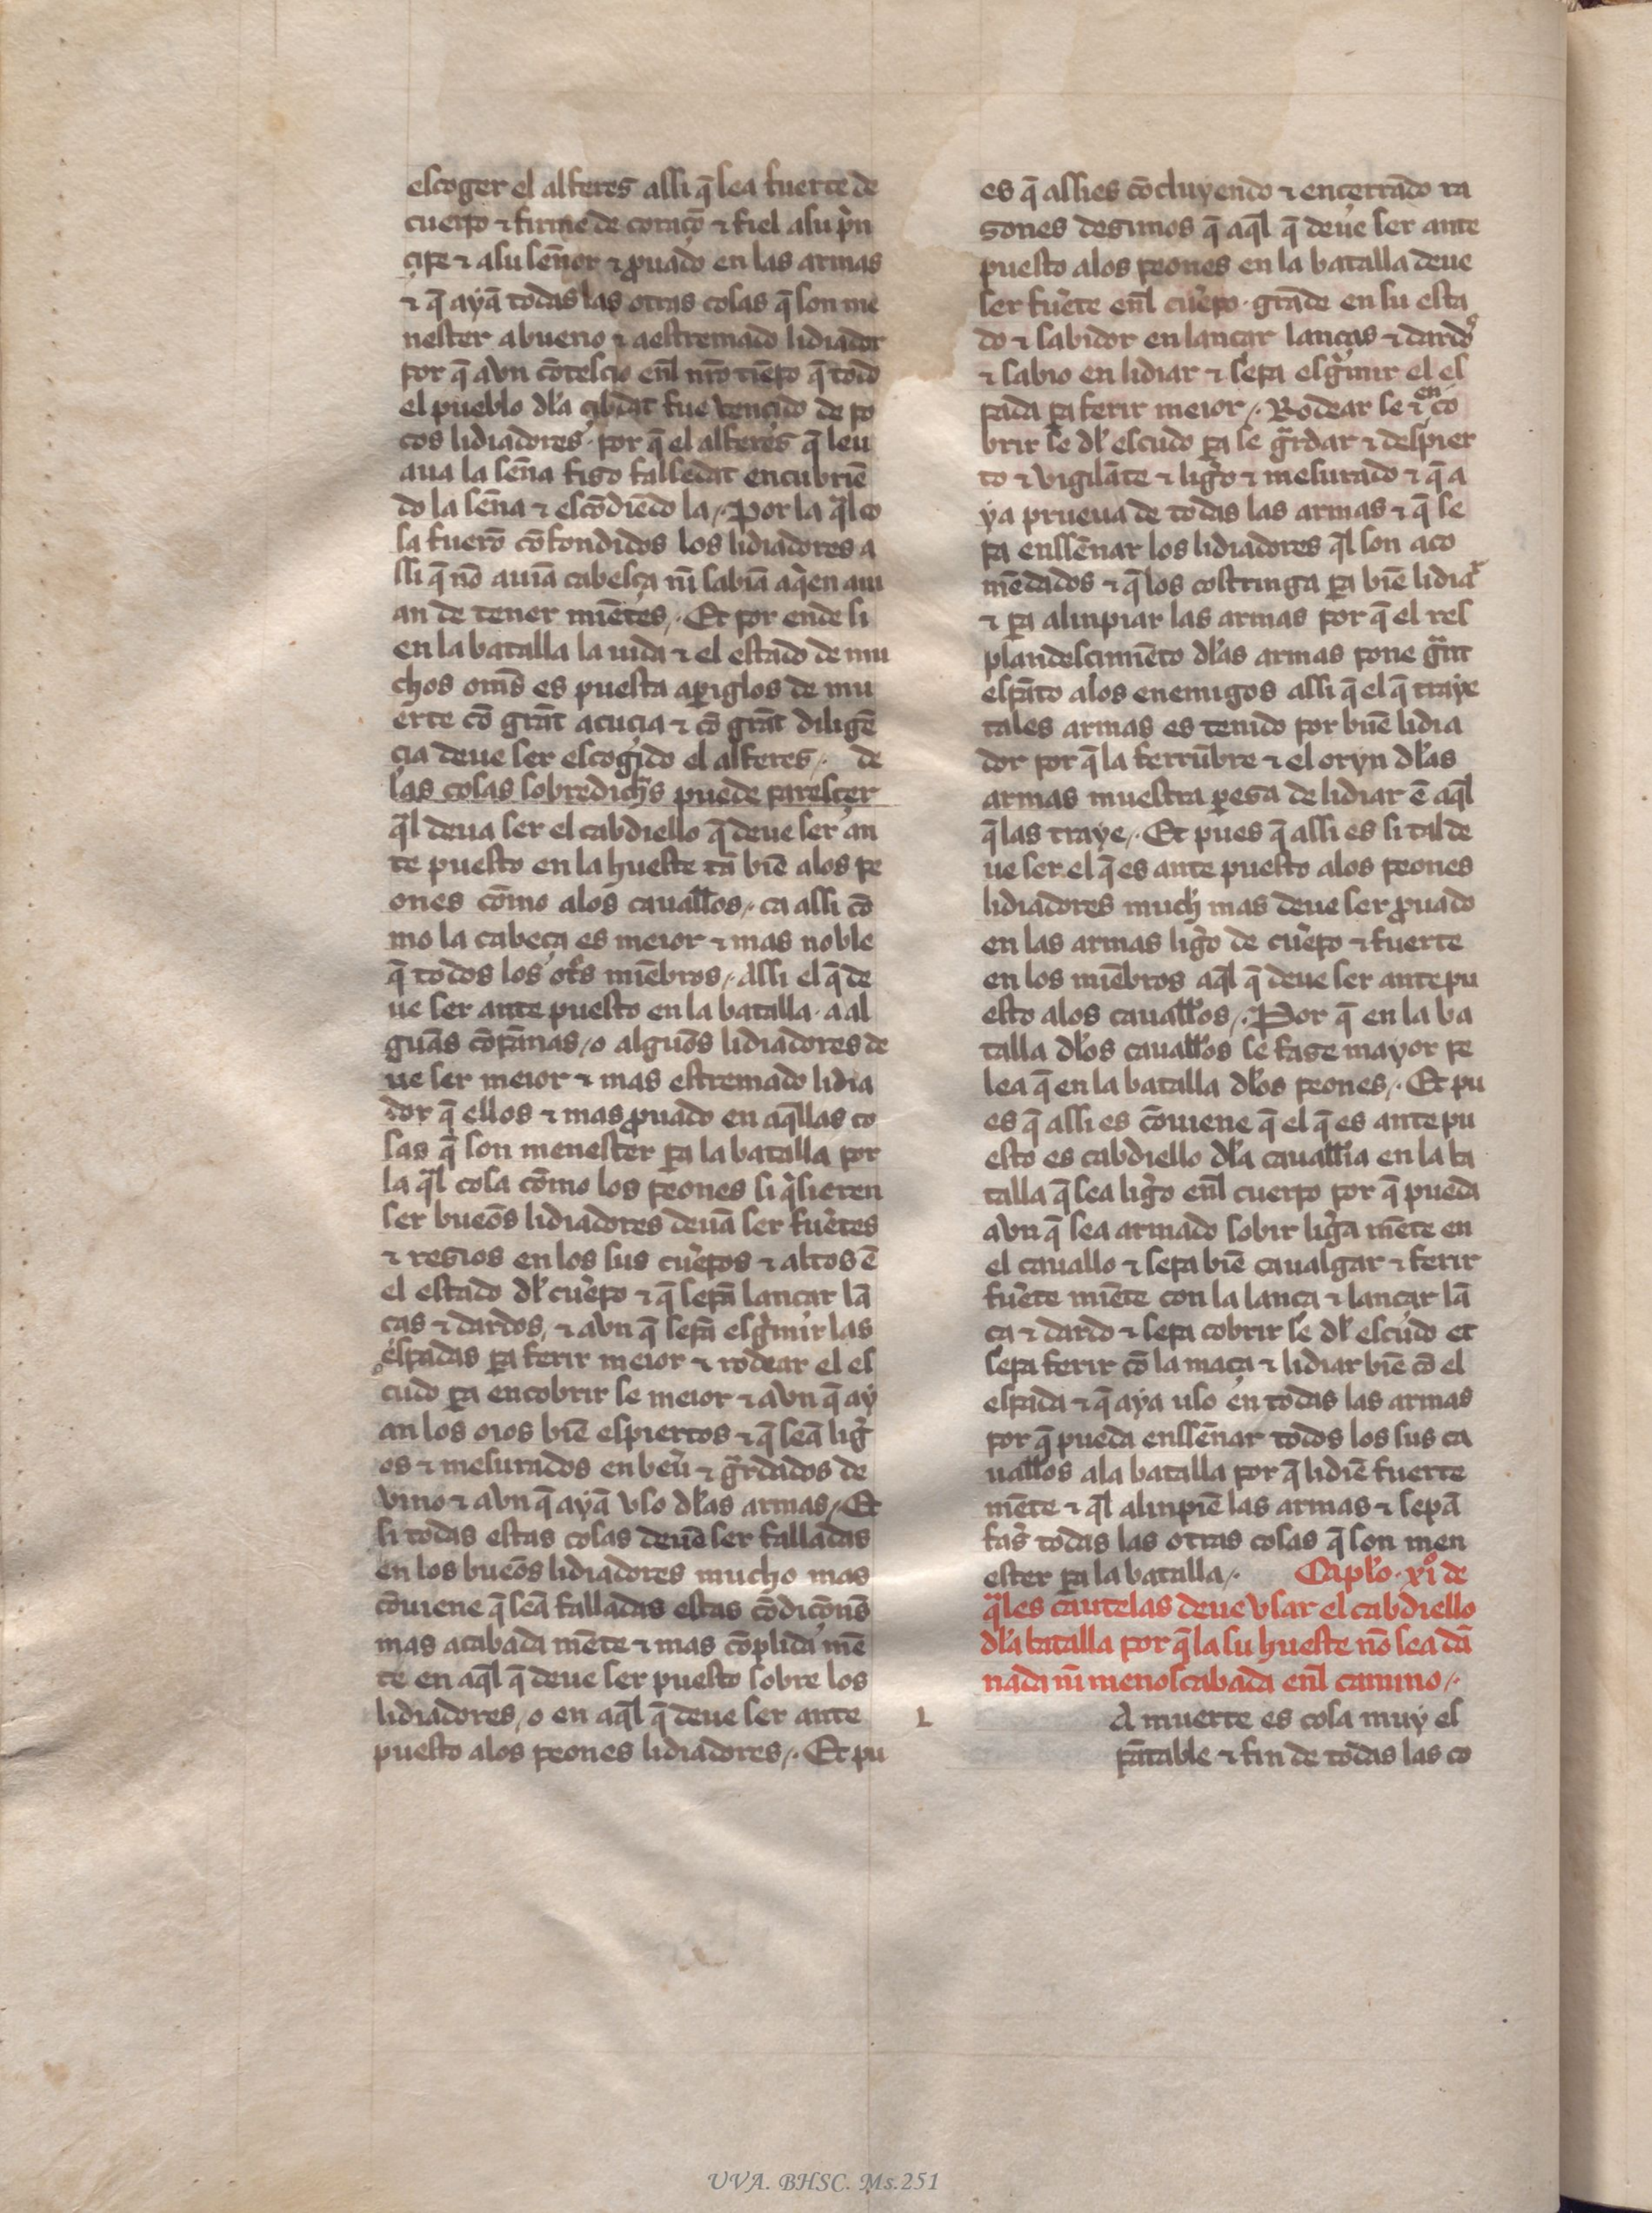 escoger el alferes assi q̄ sea fuerte de
cuerpo ⁊ firme de coraçō ⁊ fiel asu pͥn
çipe ⁊ asu sēnor ⁊ ꝓuado en las armas
⁊ q̄ ayā todas las otras cosas q̄ son me
nester abueno ⁊ aestremado lidiador
por q̄ avn cōtesçio enl̄ nr̄o tiēpo q̄ todo
el pueblo dl̓a çibdat fue vençido de po
cos lidiadores· por q̄ el alferes q̄ leu
aua la sēna fiso falsedat encubriē
do la sēna ⁊ escōdiēdo la· Por la q̄l co
sa fuerō cōfondidos los lidiadores a
ssi q̄ nō auiā cabesça nī sabiā aqͥen aui
an de tener miētes· Et por ende si
en la batalla la uida ⁊ el estado de mu
chos om̄s es puesta aꝑiglos de mu
erte cō grāt acuçia ⁊ cō grāt diligē
çia deue ser escogido el alferes· de
las cosas sobredich̓s puede paresçer
q̄l deua ser el cabdiello q̄ deue ser an
te puesto en la hueste tā biē alos pe
ones cōmo alos cauall̄os· ca assi cō
mo la cabeça es meior ⁊ mas noble
q̄ todos los ot̓s miēbros· Assi el q̄ de
ue ser ante puesto en la batalla· a al
guās cōpānas o alguōs lidiadores de
ue ser meior ⁊ mas estremado lidia
dor q̄ ellos ⁊ mas ꝓuado en aq̄llas co
sas q̄ son menester ꝑa la batalla por
la q̄l cosa cōmo los peones si qͥsieren
ser bueōs lidiadores deuā ser fu̓ertes
⁊ resios en los sus cu̓erpos ⁊ altos ē
el estado dl̓ cu̓erpo ⁊ q̄ sepā lançar lā
ças ⁊ dardos, ⁊ avn q̄ sepā esgͥmir las
espadas ꝑa ferir meior ⁊ rodear el es
cudo ꝑa encobrir se meior ⁊ avn q̄ ay
an los oios biē espiertos ⁊ q̄ seā lig̓
os ⁊ mesurados en beu̓ ⁊ gᷓrdados de
vino ⁊ avn q̄ ayā vso dl̓as armas· Et
si todas estas cosas deuē ser falladas
en los bueōs lidiadores mucho mas
cōuiene q̄ seā falladas estas cōdiçōns
mas acabada mēte ⁊ mas cōplida mē
te en aq̄l q̄ deue ser puesto sobre los
lidiadores, o en aq̄l q̄ deue ser ante
puesto alos peones lidiadores· Et pu
es q̄ assies cōcluyendo ⁊ ençerrado ra
sones desimos q̄ aq̄l q̄ deue ser ante
puesto alos peones en la batalla deue
ser fu̓erte enl̄ cu̓erpo· grāde en su esta
do ⁊ sabidor en lançar lanças ⁊ dardos
⁊ sabio en lidiar ⁊ sepa esgͥmir el es
pada ꝑa ferir meior· Rodear se ⁊ en co
brir se dl̓ escudo ꝑa se gᷓrdar ⁊ despier
to ⁊ vigilāte ⁊ lig̓o ⁊ mesurado ⁊ q̄ a
ya prueua de todas las armas ⁊ q̄ se
pa enssēnar los lidiadores q̄l son aco
mēdados ⁊ q̄ los costringa ꝑa biē lidiar
⁊ ꝑa alinpiar las armas por q̄ el res
plandesçimiēto dl̓as armas pone gᷓnt
espāto alos enemigos assi q̄ el q̄ traye
tales armas es tenido por buē lidia
dor por q̄ la ferrūbre ⁊ el oryn dl̓as
armas muestra ꝑesa de lidiar ē aq̄l
q̄ las traye· Et pues q̄ assi es si tal de
ue ser el q̄ es ante puesto alos peones
lidiadores much̓ mas deue ser ꝓuado
en las armas lig̓o de cu̓erpo ⁊ fuerte
en los miēbros aq̄l q̄ deue ser ante pu
esto alos cauall̄os· Por q̄ en la ba
talla dl̓os cauall̄os se fase mayor pe
lea q̄ en la batalla dl̓os peones· Et pu
es q̄ assi es cōuiene q̄ el q̄ es ante pu
esto es cabdiello dl̓a cauall̄ia en la ba
talla q̄ sea lig̓o enl̄ cuerpo por q̄ pueda
avn q̄ sea armado sobir lig̓a mēte en
el cauallo ⁊ sepa biē caualgar ⁊ ferir
fu̓erte miēte con la lança ⁊ lançar lā
ça ⁊ dardo ⁊ sepa cobrir se dl̓ escudo et
sepa ferir cō la maça ⁊ lidiar biē cō el
espada ⁊ q̄ aya uso en todas las armas
por q̄ pueda enssēnar todos los sus ca
uall̄os ala batalla por q̄ lidiē fuerte
mēte ⁊ q̄l alinpiē las armas ⁊ sepā
fas̓ todas las otras cosas q̄ son men
ester ꝑa la batalla· Capl̓o· xiº de
q̄les cautelas deue vsar el cabdiello
dl̓a batalla por q̄ la su hueste nō sea dā
nada nī menoscabada enl̄ camino·
L A muerte es cosa muy es
pātable ⁊ fin de todas las co
UVA. BHSC. Ms.251